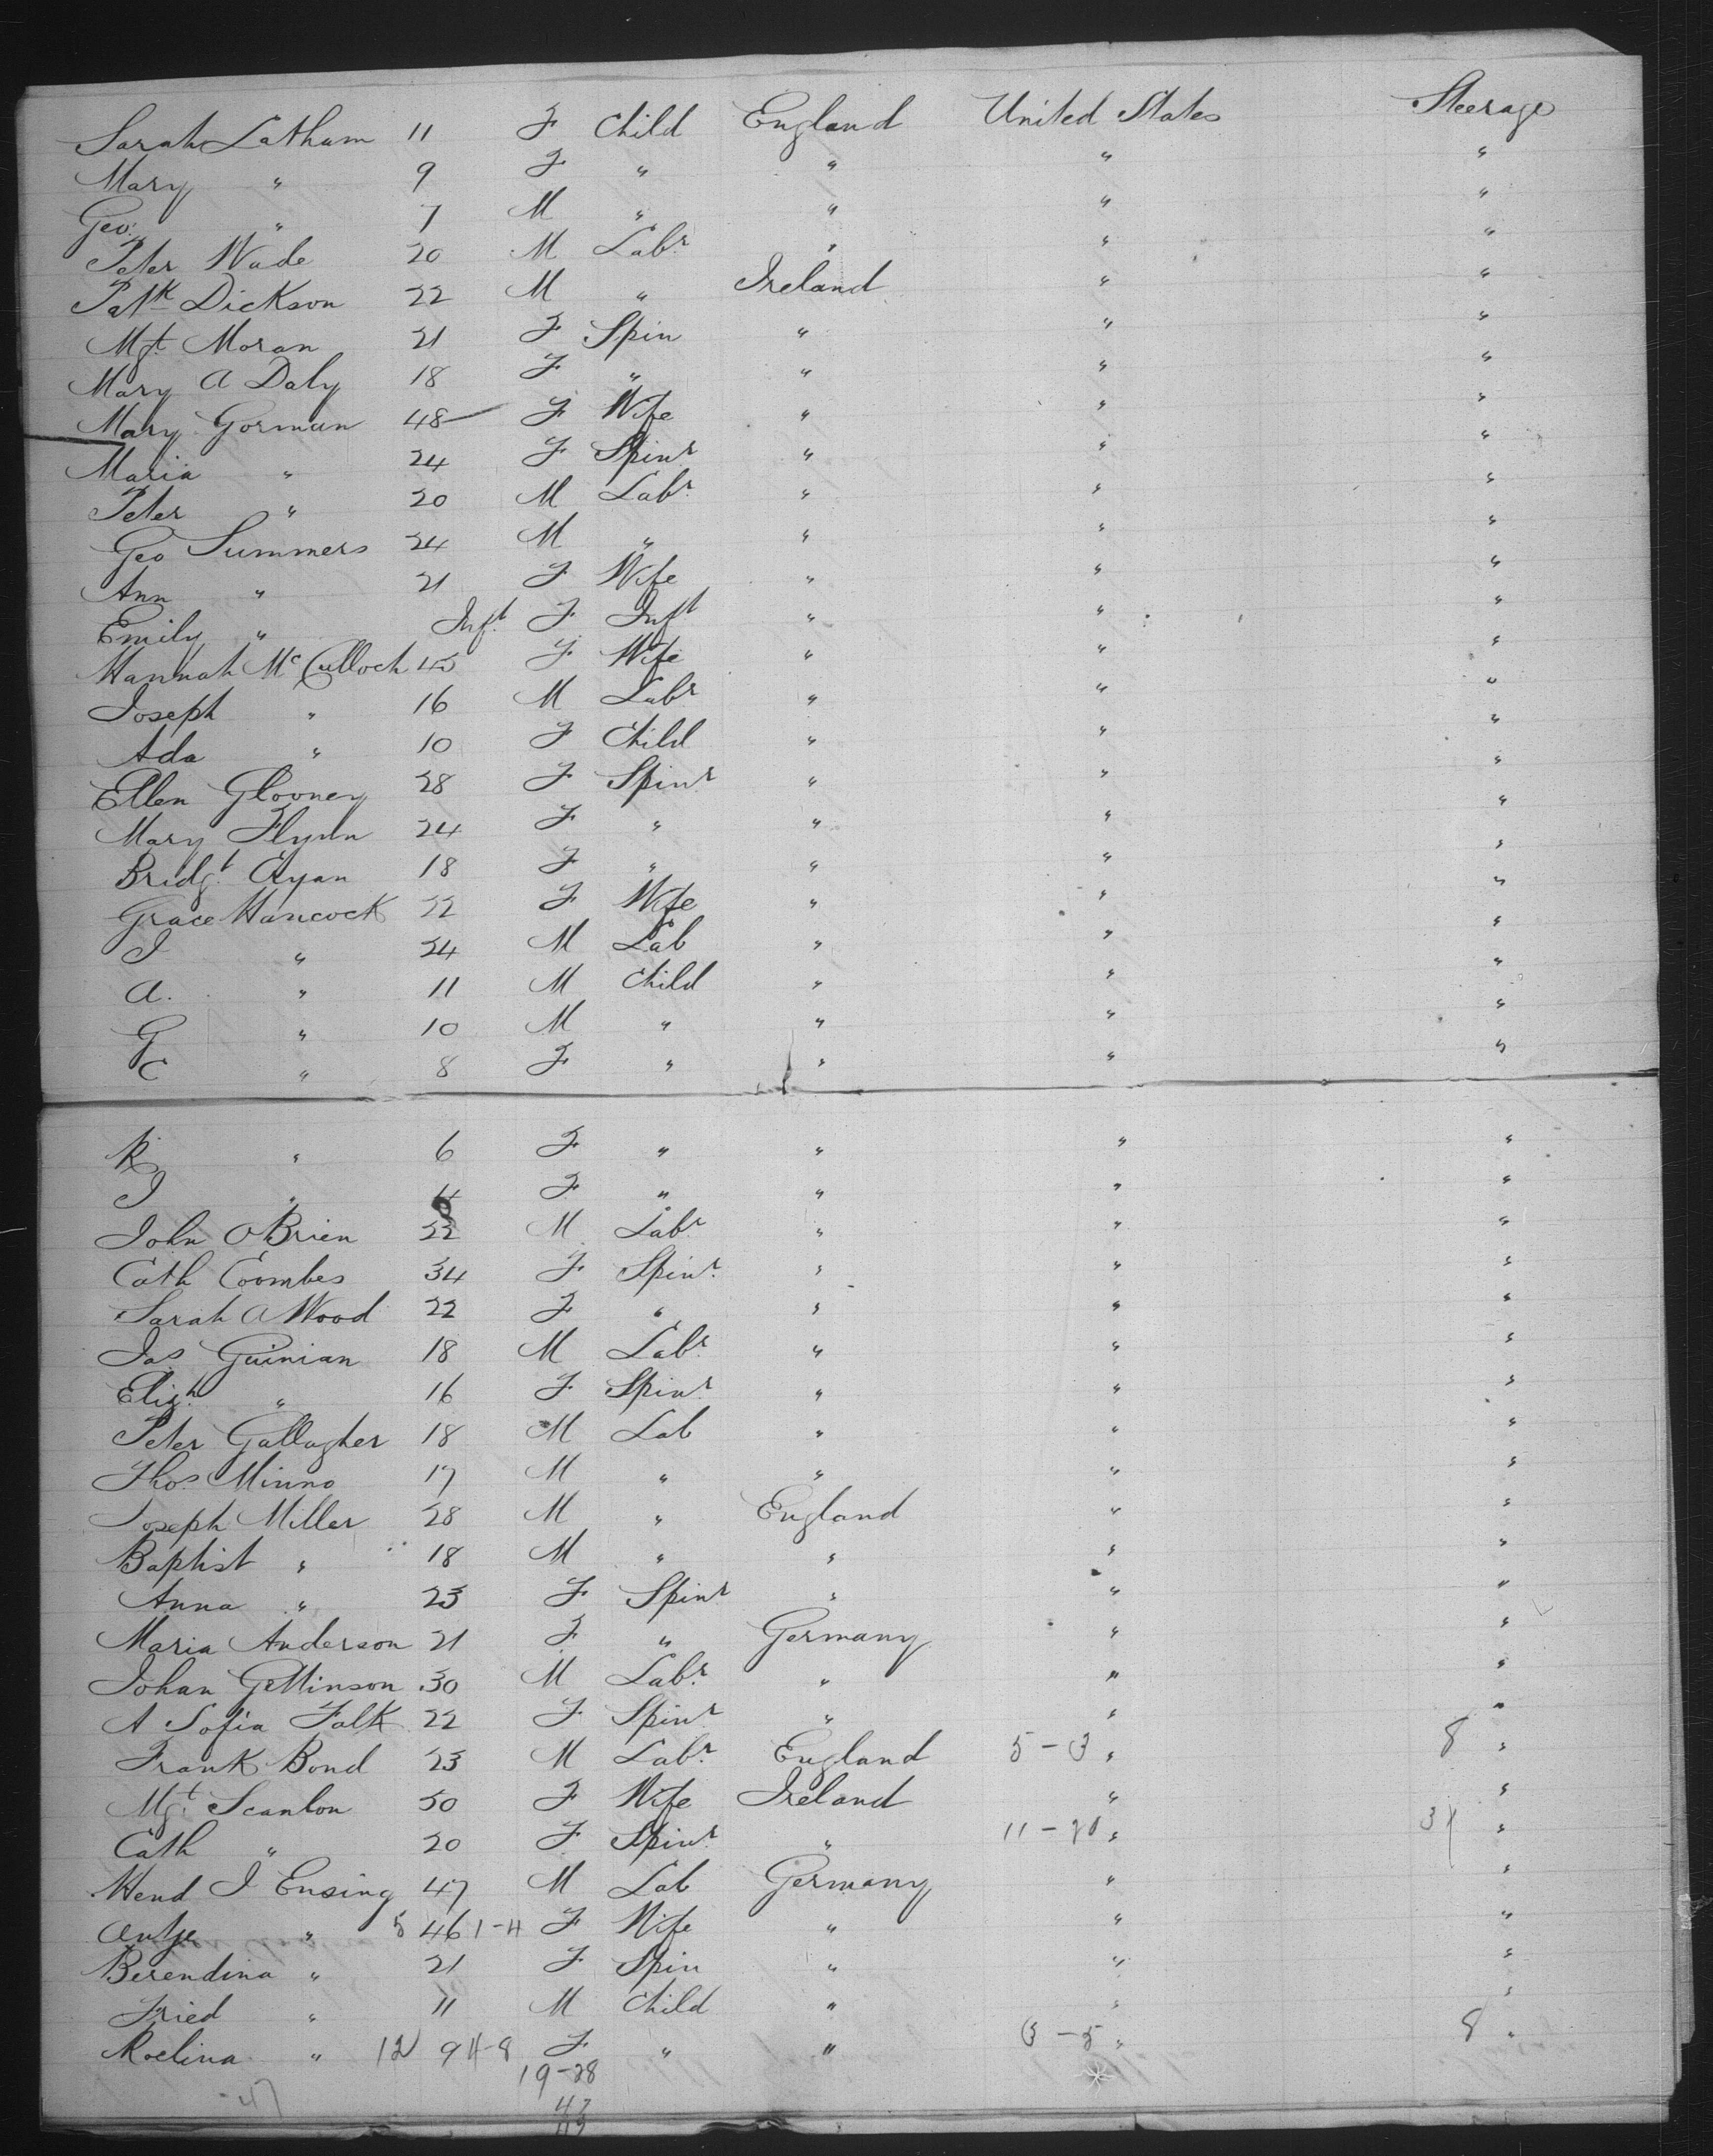 Sarah Latham 11 F Child England United States Steerage
Mary " 9 F " " " "
Geo. " 7 M " " " "
Peter Wade 20 M Labr " " "
Patk Dickson 22 M " Ireland " "
Mgt Moran 21 F Spin " " "
Mary A Daly 18 F " " " "
Mary Gorman 48 F Wife " " "
Maria " 24 F Spinr " " "
Peter " 20 M Labr " " "
Geo Summers 24 M " " " "
Ann " 21 F Wife " " "
Emily " Inft F Inft " " "
Hannah McCulloch 45 F Wife " " "
Joseph " 16 M Labr " " "
Ada " 10 F Child " " "
Ellen Glooney 28 F Spinr " " "
Mary Flynn 24 F " " " "
Bridgt 18 F " " " "
Grace Hancock 22 F Wife " " "
J " 24 M Lab " " "
A. " 11 M Child " " "
G " 10 M " " " "
C " 8 F " " " "
R " 6 F " " " "
J " 4 F " " " "
John OBrien 22 M Labr " " "
Cath Coombes 34 F Spinr " " "
Sarah A Wood 22 F " " " "
Jas Guinian 18 M Labr " " "
Elizh " 16 F Spinr " " "
Peter Gallagher 18 M Lab " " "
Thos Minno 17 M " " " "
Joseph Miller 28 M " England " "
Baptist " 18 M " " " "
Anna " 23 F Spinr " " "
Maria Anderson 21 F " Germany " "
Johan Gettinson 30 M Labr " " "
A Sofia Falk 22 F Spinr " " "
Frank Bond 23 M Labr England 5-3 " 8 "
Mgt Scanlon 50 F Wife Ireland " "
Cath " 20 F Spinr " 11-20 " 31 "
Hend J Ensing 47 M Lab Germany " "
Antje " 5 46 1-4 F Wife " " "
Berendina " 21 F Spin " " "
Fried " 11 M Child " " "
Roelina " 12 9 4-8 F " " 3-5 " 8 "
19-28
47
47